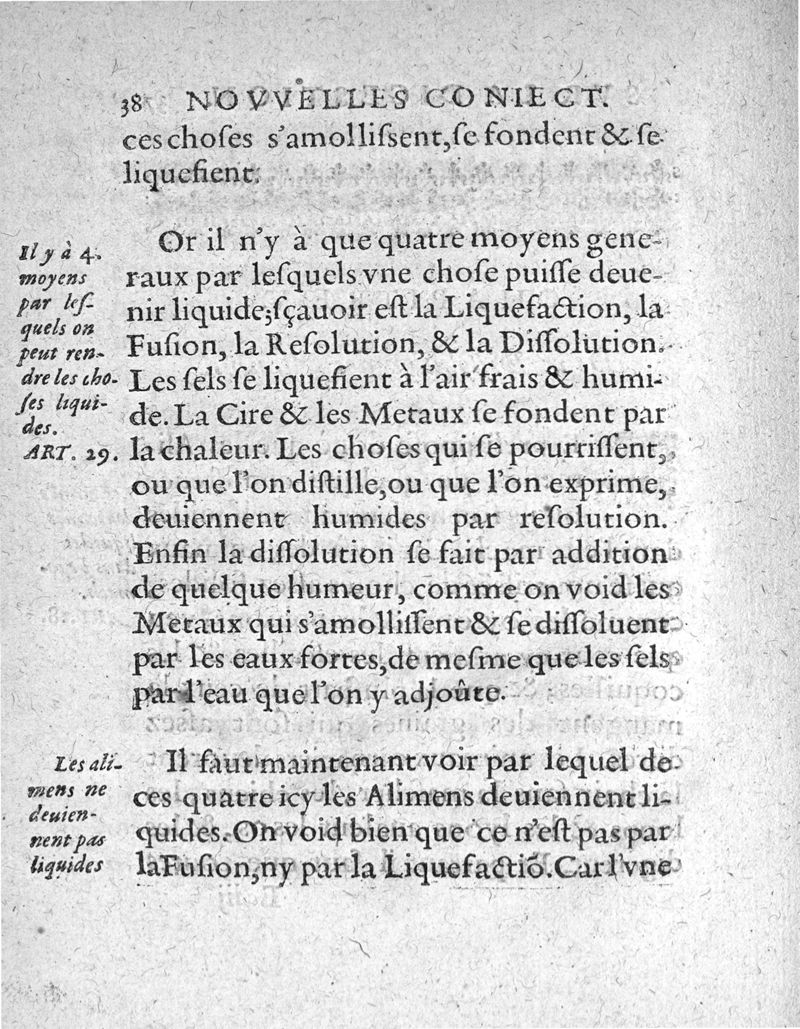 38 NOVVELLES CONIECT.
ces choſes s'amolliſsent, ſe fondent & ſe
liquefient.
Il y à 4.
moyens
par leſ-
quels on
peut ren-
dre les cho-
ſes liqui-
des.
ART. 29.
Or il n'y à que quatre moyens gene-
raux par leſquels vne choſe puiſſe deue-
nir liquide; ſçauoir eſt la Liquefaction, la
Fuſion, la Reſolution, & la Diſſolution.
Les ſels ſe liquefient à l'air frais & humi-
de. La Cire & les Metaux ſe fondent par
la chaleur. Les choſes qui ſe pourriſſent,
ou que l'on diſtille, ou que l'on exprime,
deuiennent humides par reſolution.
Enfin la diſſolution ſe fait par addition
de quelque humeur, comme on void les
Metaux qui s'amolliſſent & ſe diſſoluent
par les eaux fortes, de meſme que les ſels
par l'eau que l'on y adjoûte.
Les ali-
mens ne
deuien-
nent pas
liquides
Il faut maintenant voir par lequel de
ces quatre icy les Alimens deuiennent li-
quides. On void bien que ce n'eſt pas par
la Fuſion, ny par la Liquefactiõ. Car l'vne